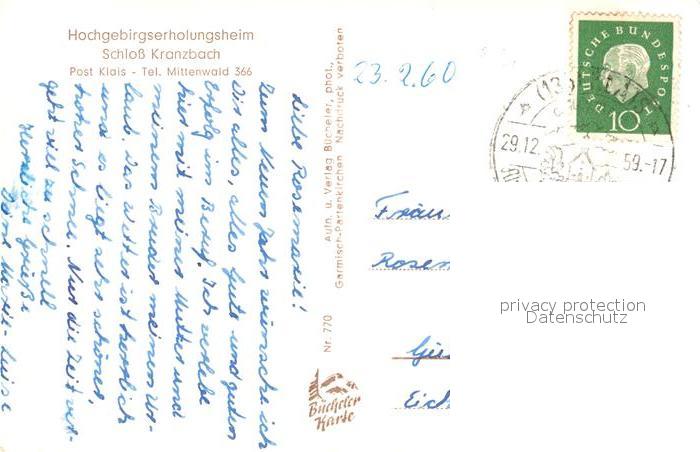 Hochgebirgserholungsheim
Schloß Kranzbach
Post Klais - Tel. Mittenwald 366
Liebe Rosemarie!
Zum Neuen Jahr wünsche ich
Dir alles, alles Gute und guten
Erfolg im Beruf. Ich verlebe
hier mit meiner Mutter und
meinem Bruder meinen Ur-
laub. Das Wetter ist herrlich
und es liegt sehr schöner,
hoher Schnee. Nur die Zeit ver-
geht viel zu schnell
Herzliche Grüße
Deine Marie-Luise
Aufn. u. Verlag Bücheler, phot.,
Garmisch-Partenkirchen Nachdruck verboten
Nr. 770
Bücheler
Karte
23.2.60
DEUTSCHE BUNDESPOST
10
(13b)
29.12.59.-17
Frau
Rosem
Eich
privacy protection
Datenschutz